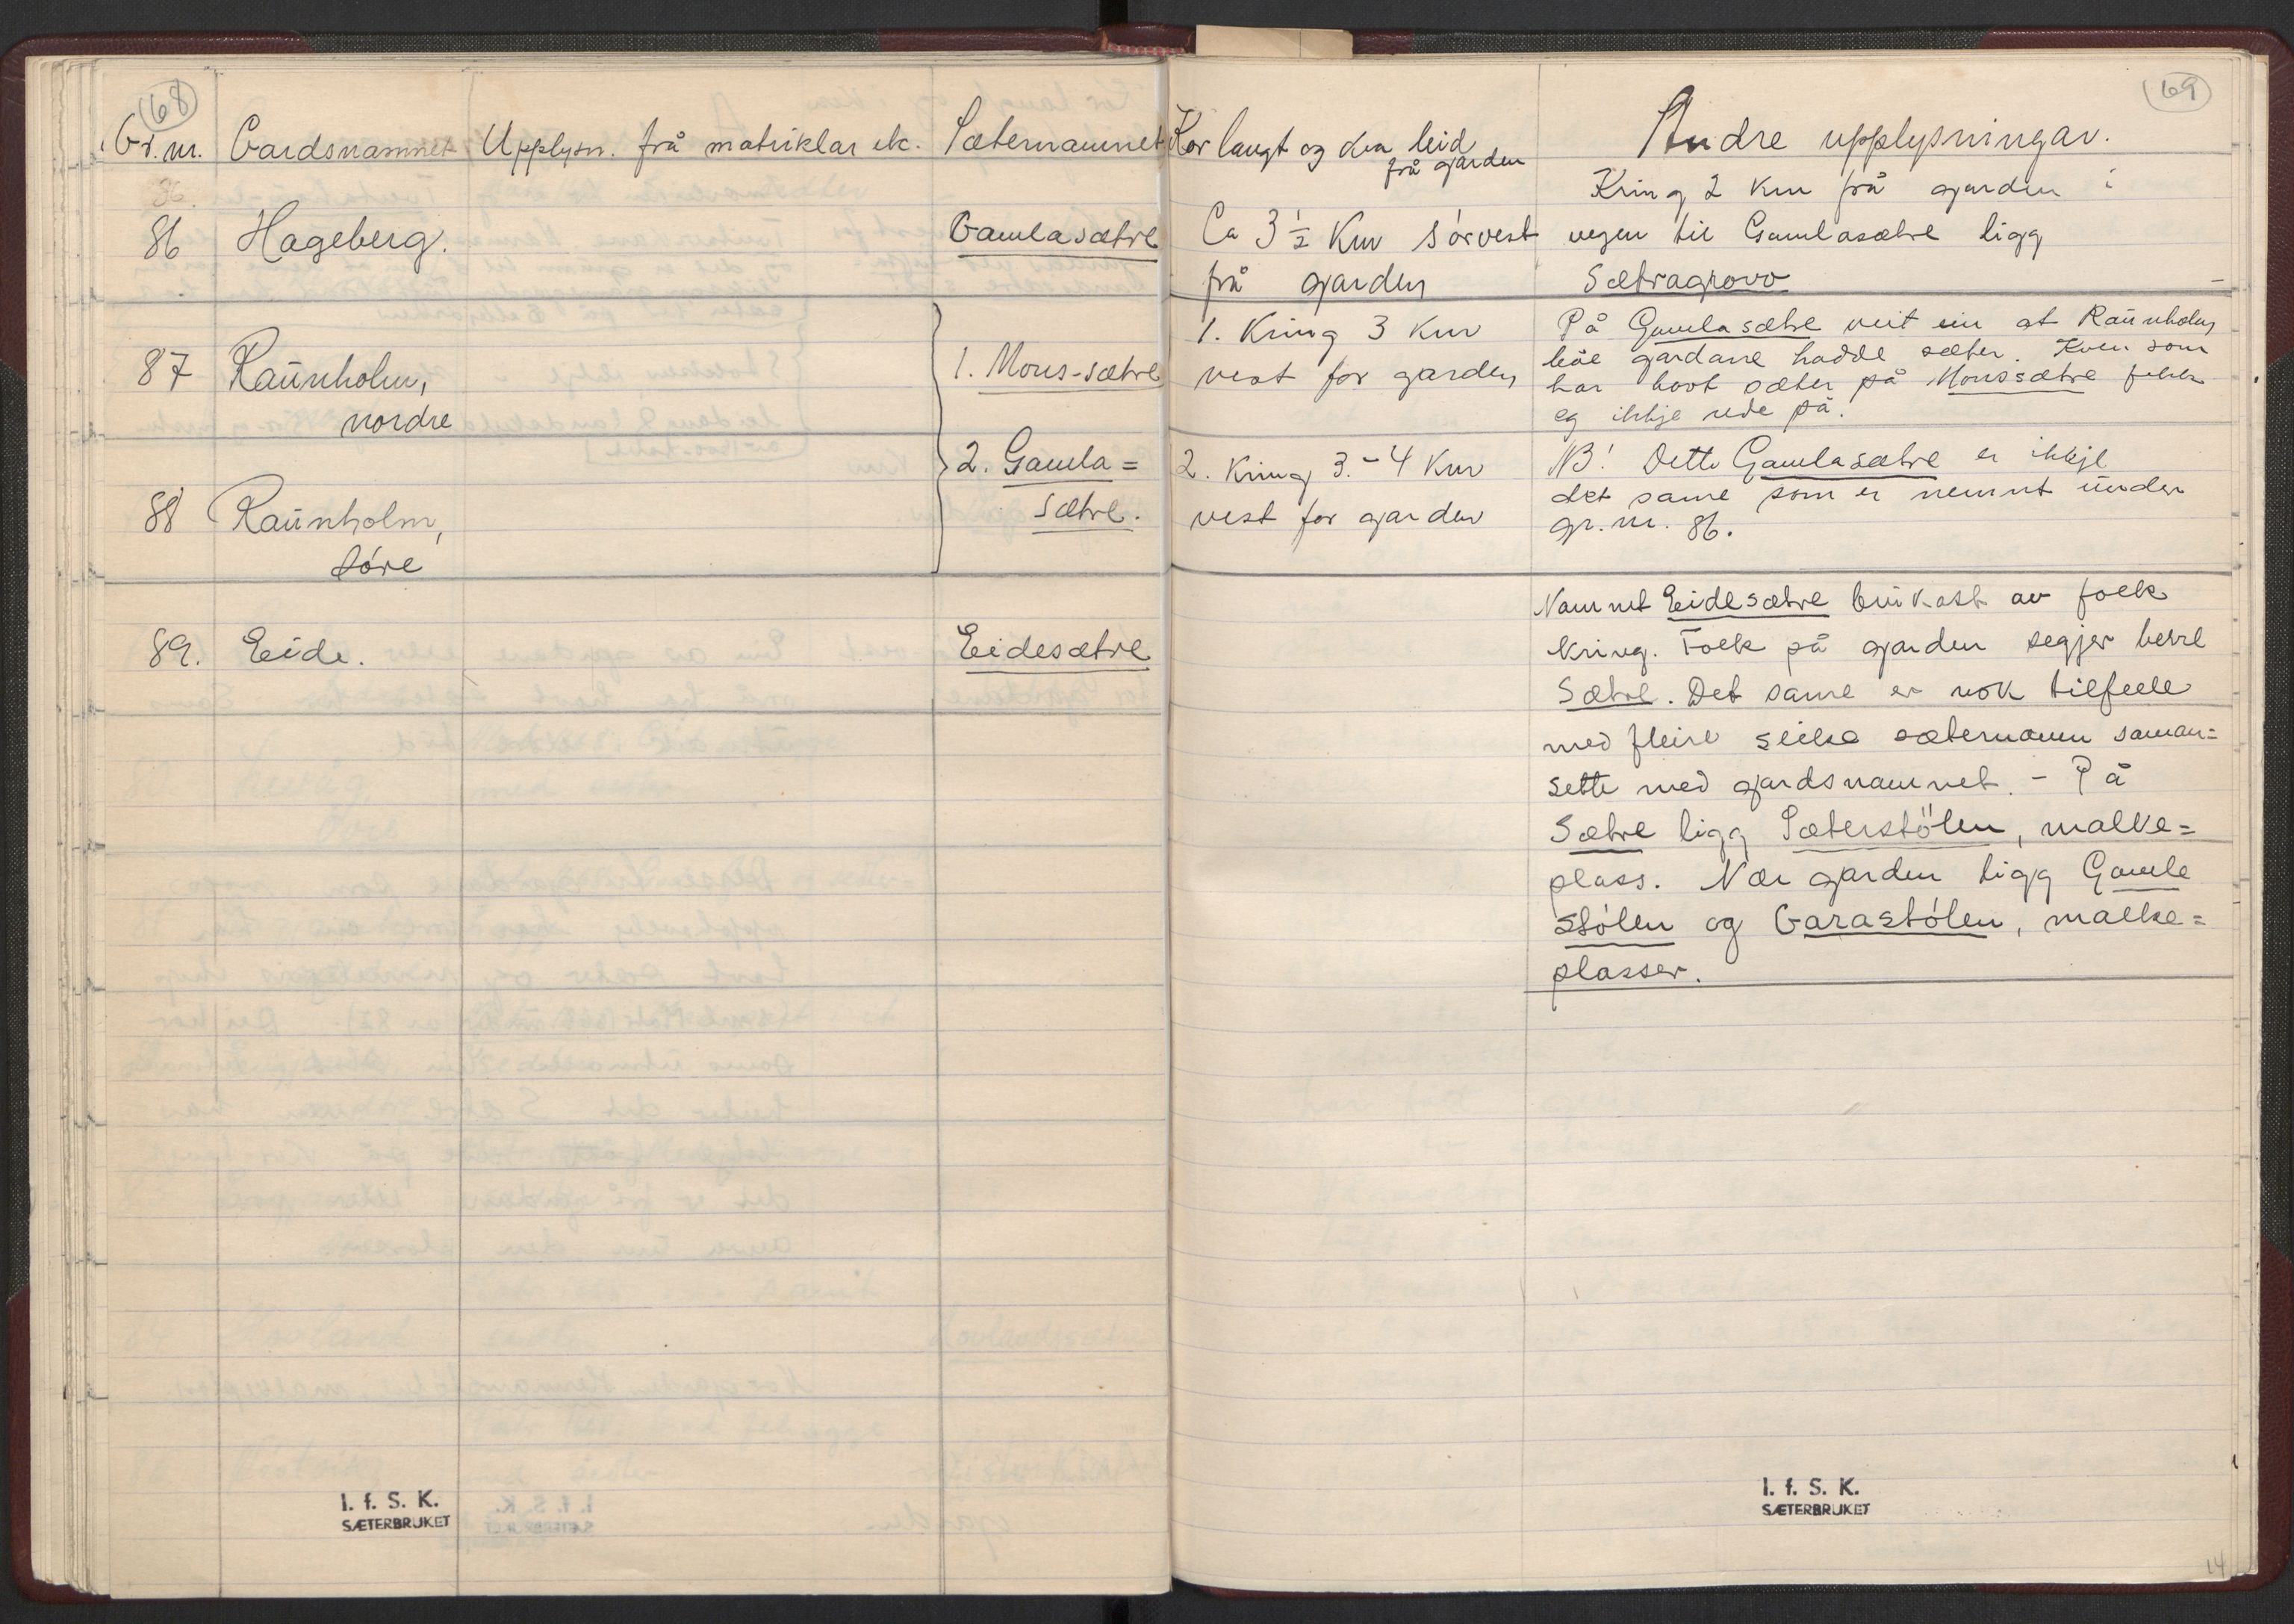 68
Gr. nr. Gardsnamnet Upplysn. frå matriklar etc. Sæternamnet
86 Hageberg. Gamlasætre
87 Raunholm,
nordre
1. Mons-sætre
2. Gamla=
sætre.
88 Raunholm,
søre
89. Eide. Eidesætre
I. f. S. K.
SÆTERBRUKET
69
Kor langt og kva leid
frå garden
Andre upplysningar.
Ca 3 1/2 Km sørvest
frå garden
Kring 2 km frå garden i
vegen til Gamlasætre ligg
Sætragrovo
1. Kring 3 Km
vest for garden
På Gamlasætre veit ein at Raunholm
båe gardane hadde sæter. Kven som
har havt sæter på Monssætre fekk
eg ikkje rede på.
2. Kring 3.-4 Km
vest for garden
NB! Dette Gamlasætre er ikkje
det same som er nemnt under
gr. nr. 86.
Namnet Eidesætre brukast av folk
kring. Folk på garden segjer berre
Sætre. Det same er nok tilfelle
med fleire slike sæternamn saman=
sette med gardsnamnet. - På
Sætre ligg Sæterstölen, malke=
plass. Nær garden ligg Gamle
stølen og Garastølen, malke=
plasser.
I. f. S. K.
SÆTERBRUKET
14